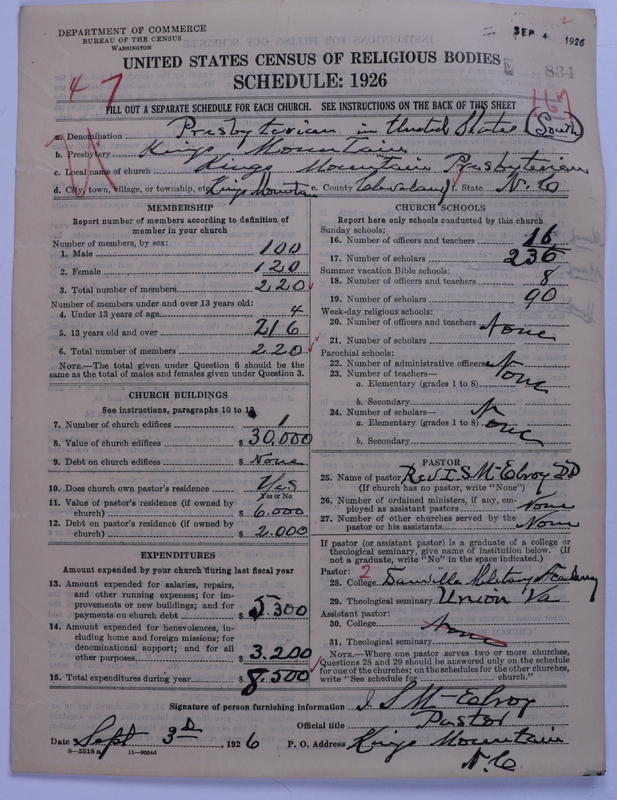 DEPARTMENT OF COMMERCE
BUREAU OF THE CENSUS
WASHINGTON
SEP 4 1926
2
UNITED STATES CENSUS OF RELIGIOUS BODIES
834
SCHEDULE: 1926
47
167
FILL OUT A SEPARATE SCHEDULE FOR EACH CHURCH. SEE INSTRUCTIONS ON THE BACK OF THIS SHEET
a. Denomination Presbyterian in United States (South)
b. Presbytery Kings Mountain
c. Local name of church Kings Mountain Presbyterian
d. City, town, village, or township, etc. Kings Mountain e. County Cleveland f. State N. C
MEMBERSHIP
Report number of members according to definition of
member in your church
Number of members, by sex:
1. Male 100
2. Female 120
3. Total number of members 220
Number of members under and over 13 years old:
4. Under 13 years of age 4
5. 13 years old and over 216
6. Total number of members 220
NOTE.—The total given under Question 6 should be
same as the total of males and females given under Question 3.
CHURCH BUILDINGS
See instructions, paragraphs 10 to
7. Number of church edifices 1
8. Value of church edifices $ 30,000
9. Debt on church edifices $ None
10. Does church own pastor's residence Yes
Yes or No
11. Value of pastor's residence (if owned by
church) $ 6,000
12. Debt on pastor's residence (if owned by
church) $ 2,000
EXPENDITURES
Amount expended by your church during last fiscal year
13. Amount expended for salaries, repairs,
and other running expenses; for im-
provements or new buildings; and for
payments on church debt $ 5.300
14. Amount expended for benevolences, in-
cluding home and foreign missions; for
denominational support; and for all
other purposes $ 3,200
15. Total expenditures during year $ 8.500
CHURCH SCHOOLS
Report here only schools conducted by this church
Sunday schools:
16. Number of officers and teachers 16
17. Number of scholars 236
Summer vacation Bible schools:
18. Number of officers and teachers 8
19. Number of scholars 90
Week-day religious schools:
20. Number of officers and teachers None
21. Number of scholars
Parochial schools:
22. Number of administrative officers None
23. Number of teachers—
a. Elementary (grades 1 to 8)
b. Secondary
24. Number of scholars—
a. Elementary (grades 1 to 8) None
b. Secondary
PASTOR
25. Name of pastor Rev I. S McElroy DD
(If church has no pastor, write "None")
26. Number of ordained ministers, if any, em-
ployed as assistant pastors None
27. Number of other churches served by the
pastor or his assistants None
If pastor (or assistant pastor) is a graduate of a college or
theological seminary, give name of institution below. (If
not a graduate, write "No" in the space indicated.)
Pastor: 2
28. College Danville Military Academy
29. Theological seminary Union Va
Assistant pastor:
30. College None
31. Theological seminary
NOTE.—Where one pastor serves two or more churches,
Questions 28 and 29 should be answered only on the schedule
for one of the churches; on the schedules for the other churches,
write "See schedule for church."
Signature of person furnishing information I S McElroy
Official title Pastor
Date Sept 3D, 1926 P. O. Address Kings Mountain
N. C
8—5518 a 11—9544